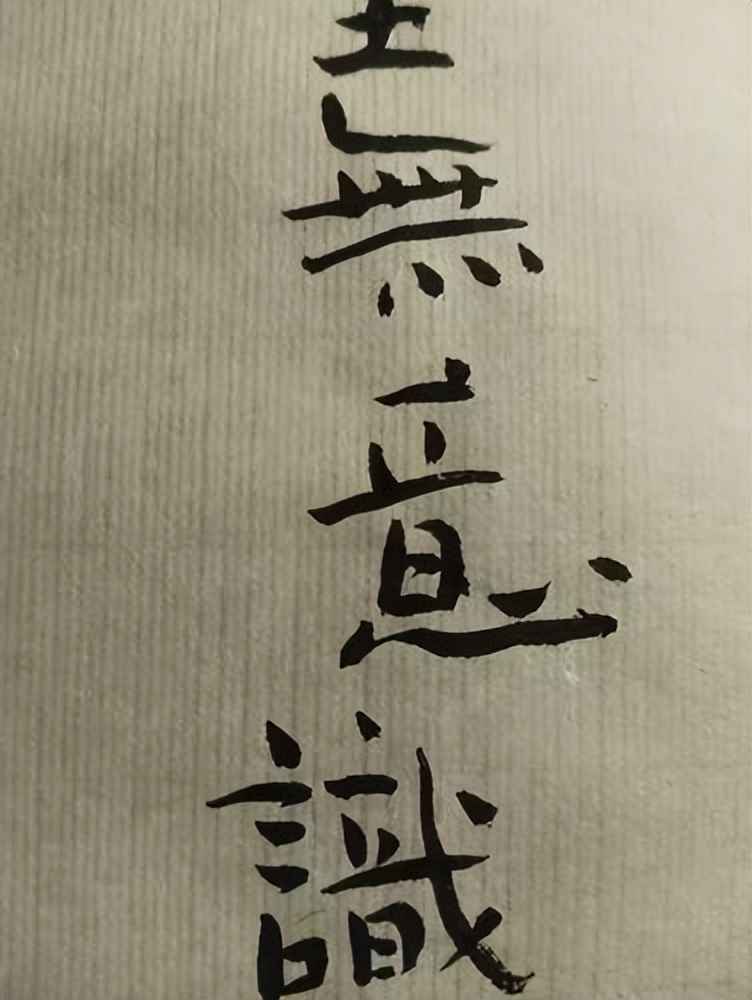 無意識